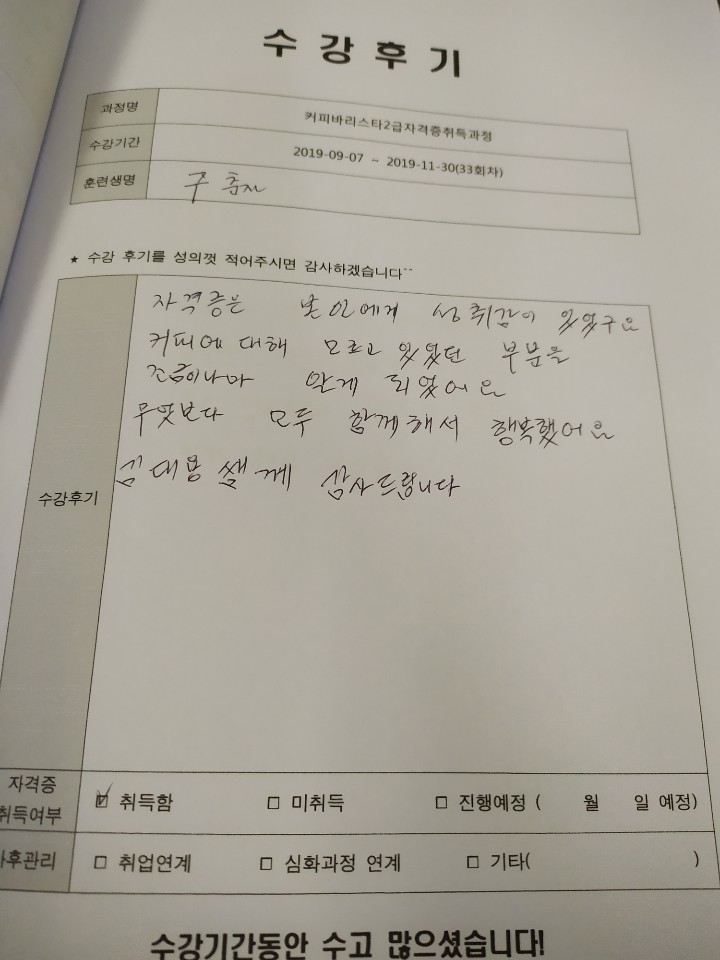 수강후기
과정명 커피바리스타2급자격증취득과정
수강기간 2019-09-07 ~ 2019-11-30(33회차)
훈련생명 구 춘자
★ 수강 후기를 성의껏 적어주시면 감사하겠습니다^^
수강후기
자격증은 본인에게 성취감이 있었구요
커피에 대해 모르고 있었던 부분을
조금이나마 알게 되었어요
무엇보다 모두 함께해서 행복했어요
김대용 쌤께 감사드립니다
자격증
취득여부
☑ 취득함 □ 미취득 □ 진행예정 ( 월 일 예정)
사후관리 □ 취업연계 □ 심화과정 연계 □ 기타( )
수강기간동안 수고 많으셨습니다!